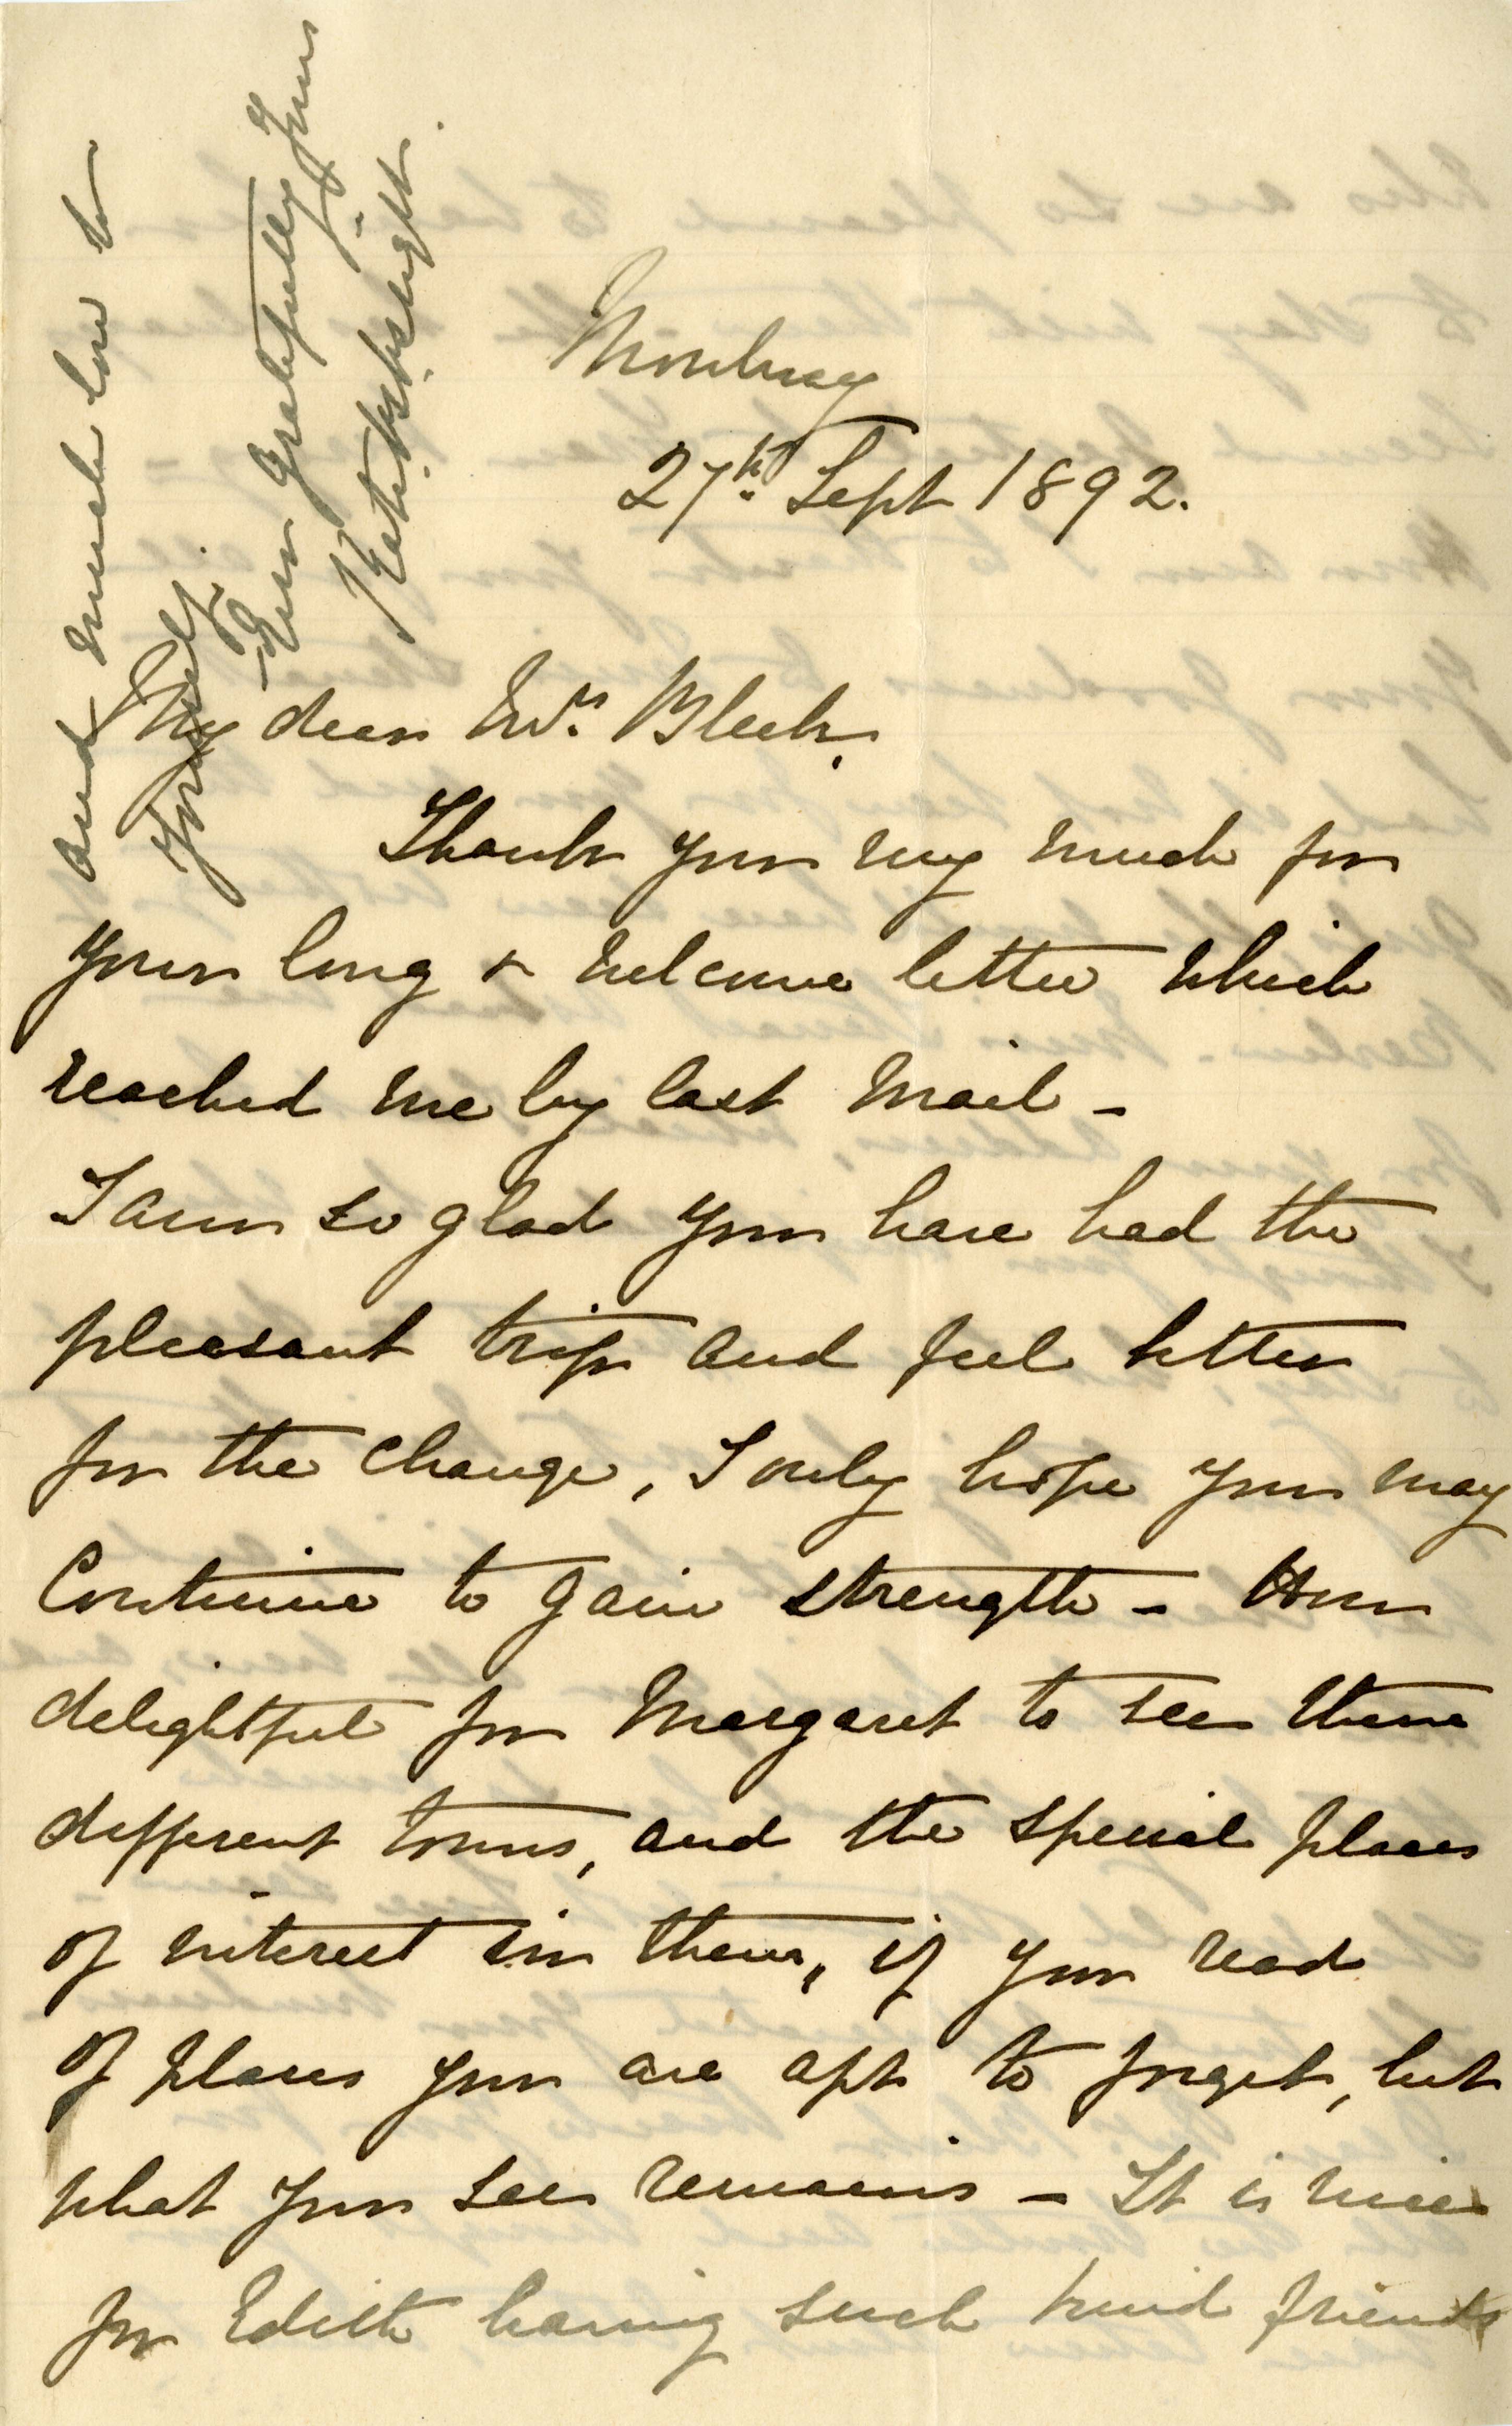 Mowbray
27th. Sept 1892.
My dear Mrs. Bleek,
Thank you very much for
your long & welcome letter which
reached me by last mail –
I am so glad you have had the
pleasant trip and feel better
for the change, I only hope you may
Continue to gain strength – How
delightful for Margaret to see these
different towns, and the special places
of interest in them, if you read
of places you are apt to forget, but
what you see remains – It is nice
for Edith having such kind friends
and much love to
Yourself.
Ever gratefully Yours